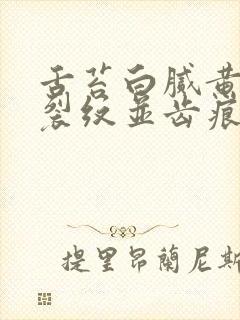 舌苔白腻黄
裂纹并齿痕
提里昂蘭尼斯